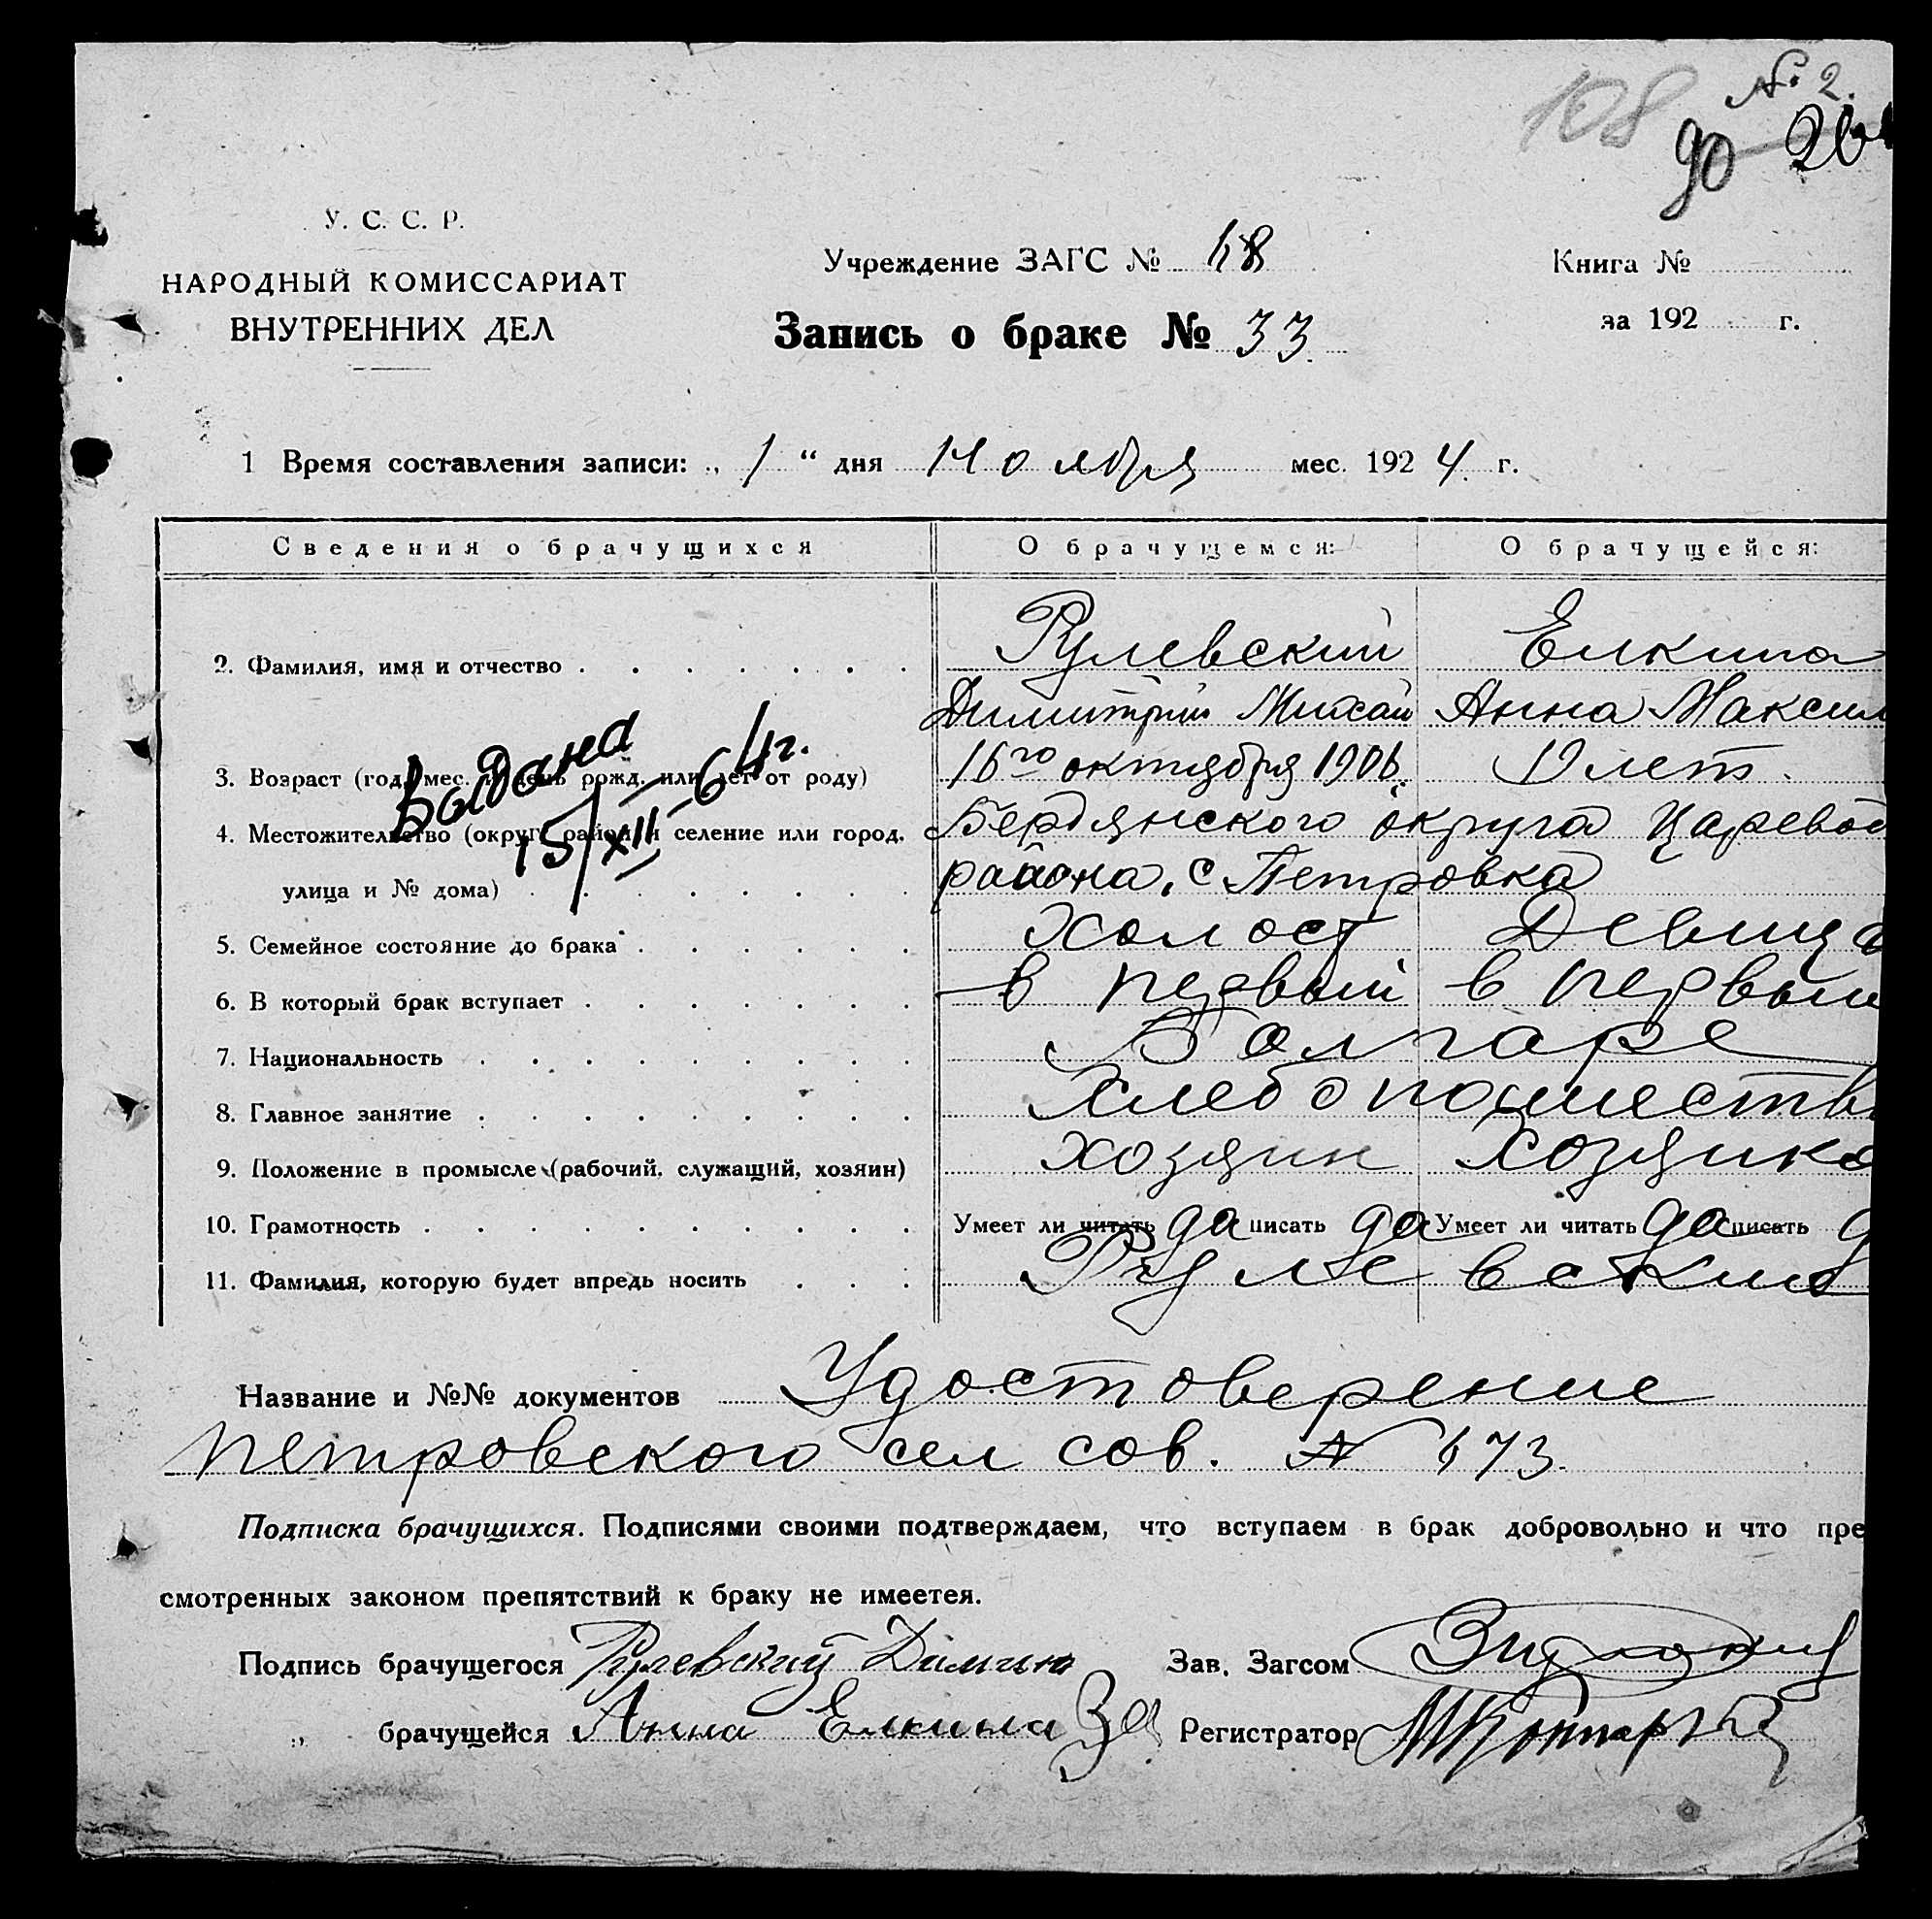 108 № 2.
90
У. С. С. Р.
НАРОДНЫЙ КОМИССАРИАТ
ВНУТРЕННИХ ДЕЛ
Учреждение ЗАГС № 48
Запись о браке № 33
Книга №
за 192 г.
1 Время составления записи: „ 1 “ дня Ноября мес. 1924 г.
Сведения о брачущихся О брачущемся: О брачущейся:
2. Фамилия, имя и отчество Рулевский Елкина
Димитрий Михай Анна Максим
3. Возраст (год, мес. и день рожд. или лет от роду) 16го октября 1906 19 лет.
Выдана
15/XII–64г.
4. Местожительство (округ, район и селение или город, Бердянского округа Царевод
улица и № дома) района, с Петровка
5. Семейное состояние до брака Холост Девица
6. В который брак вступает в первый в первый
7. Национальность Болгаре
8. Главное занятие Хлебопашеств
9. Положение в промысле (рабочий, служащий, хозяин) хозяин Хозяйка
10. Грамотность Умеет ли читать да писать да Умеет ли читать да писать д
11. Фамилия, которую будет впредь носить Рулевские
Название и №№ документов Удостоверение
Петровского сел сов. № 673.
Подписка брачущихся. Подписями своими подтверждаем, что вступаем в брак добровольно и что пре
смотренных законом препятствий к браку не имеетея.
Подпись брачущегося Рулевский Зав. Загсом
„ брачущейся Анна Елкина Регистратор